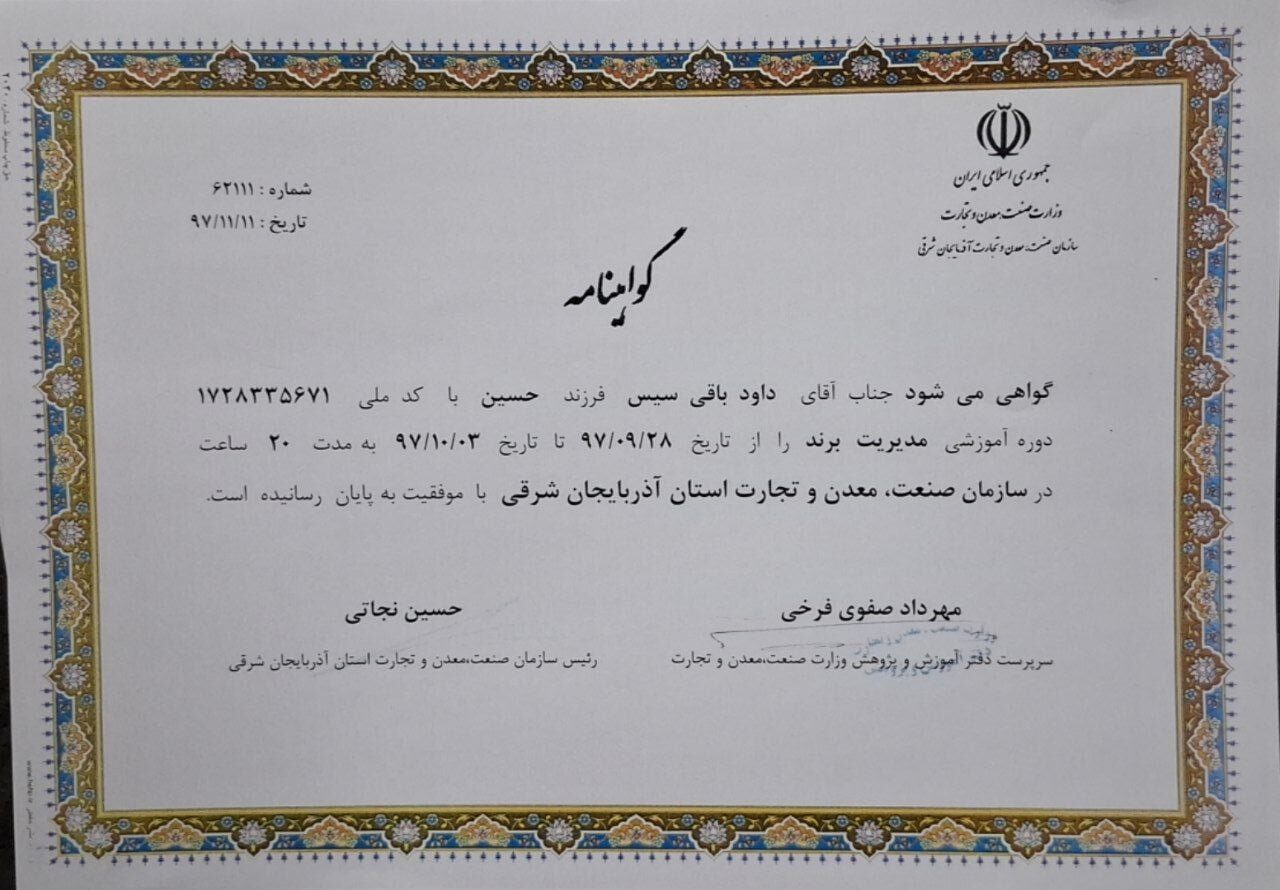 جمهوری اسلامی ایران
وزارت صنعت، معدن و تجارت
سازمان صنعت، معدن و تجارت آذربایجان شرقی
شماره : ۶۲۱۱۱
تاریخ : ۹۷/۱۱/۱۱
گواهینامه
گواهی می شود جناب آقای داود باقی سیس فرزند حسین با کد ملی ۱۷۲۸۳۳۵۶۷۱
دوره آموزشی مدیریت برند را از تاریخ ۹۷/۰۹/۲۸ تا تاریخ ۹۷/۱۰/۰۳ به مدت ۲۰ ساعت
در سازمان صنعت، معدن و تجارت استان آذربایجان شرقی با موفقیت به پایان رسانیده است.
مهرداد صفوی فرخی
سرپرست دفتر آموزش و پژوهش وزارت صنعت،معدن و تجارت
حسین نجاتی
رئیس سازمان صنعت،معدن و تجارت استان آذربایجان شرقی